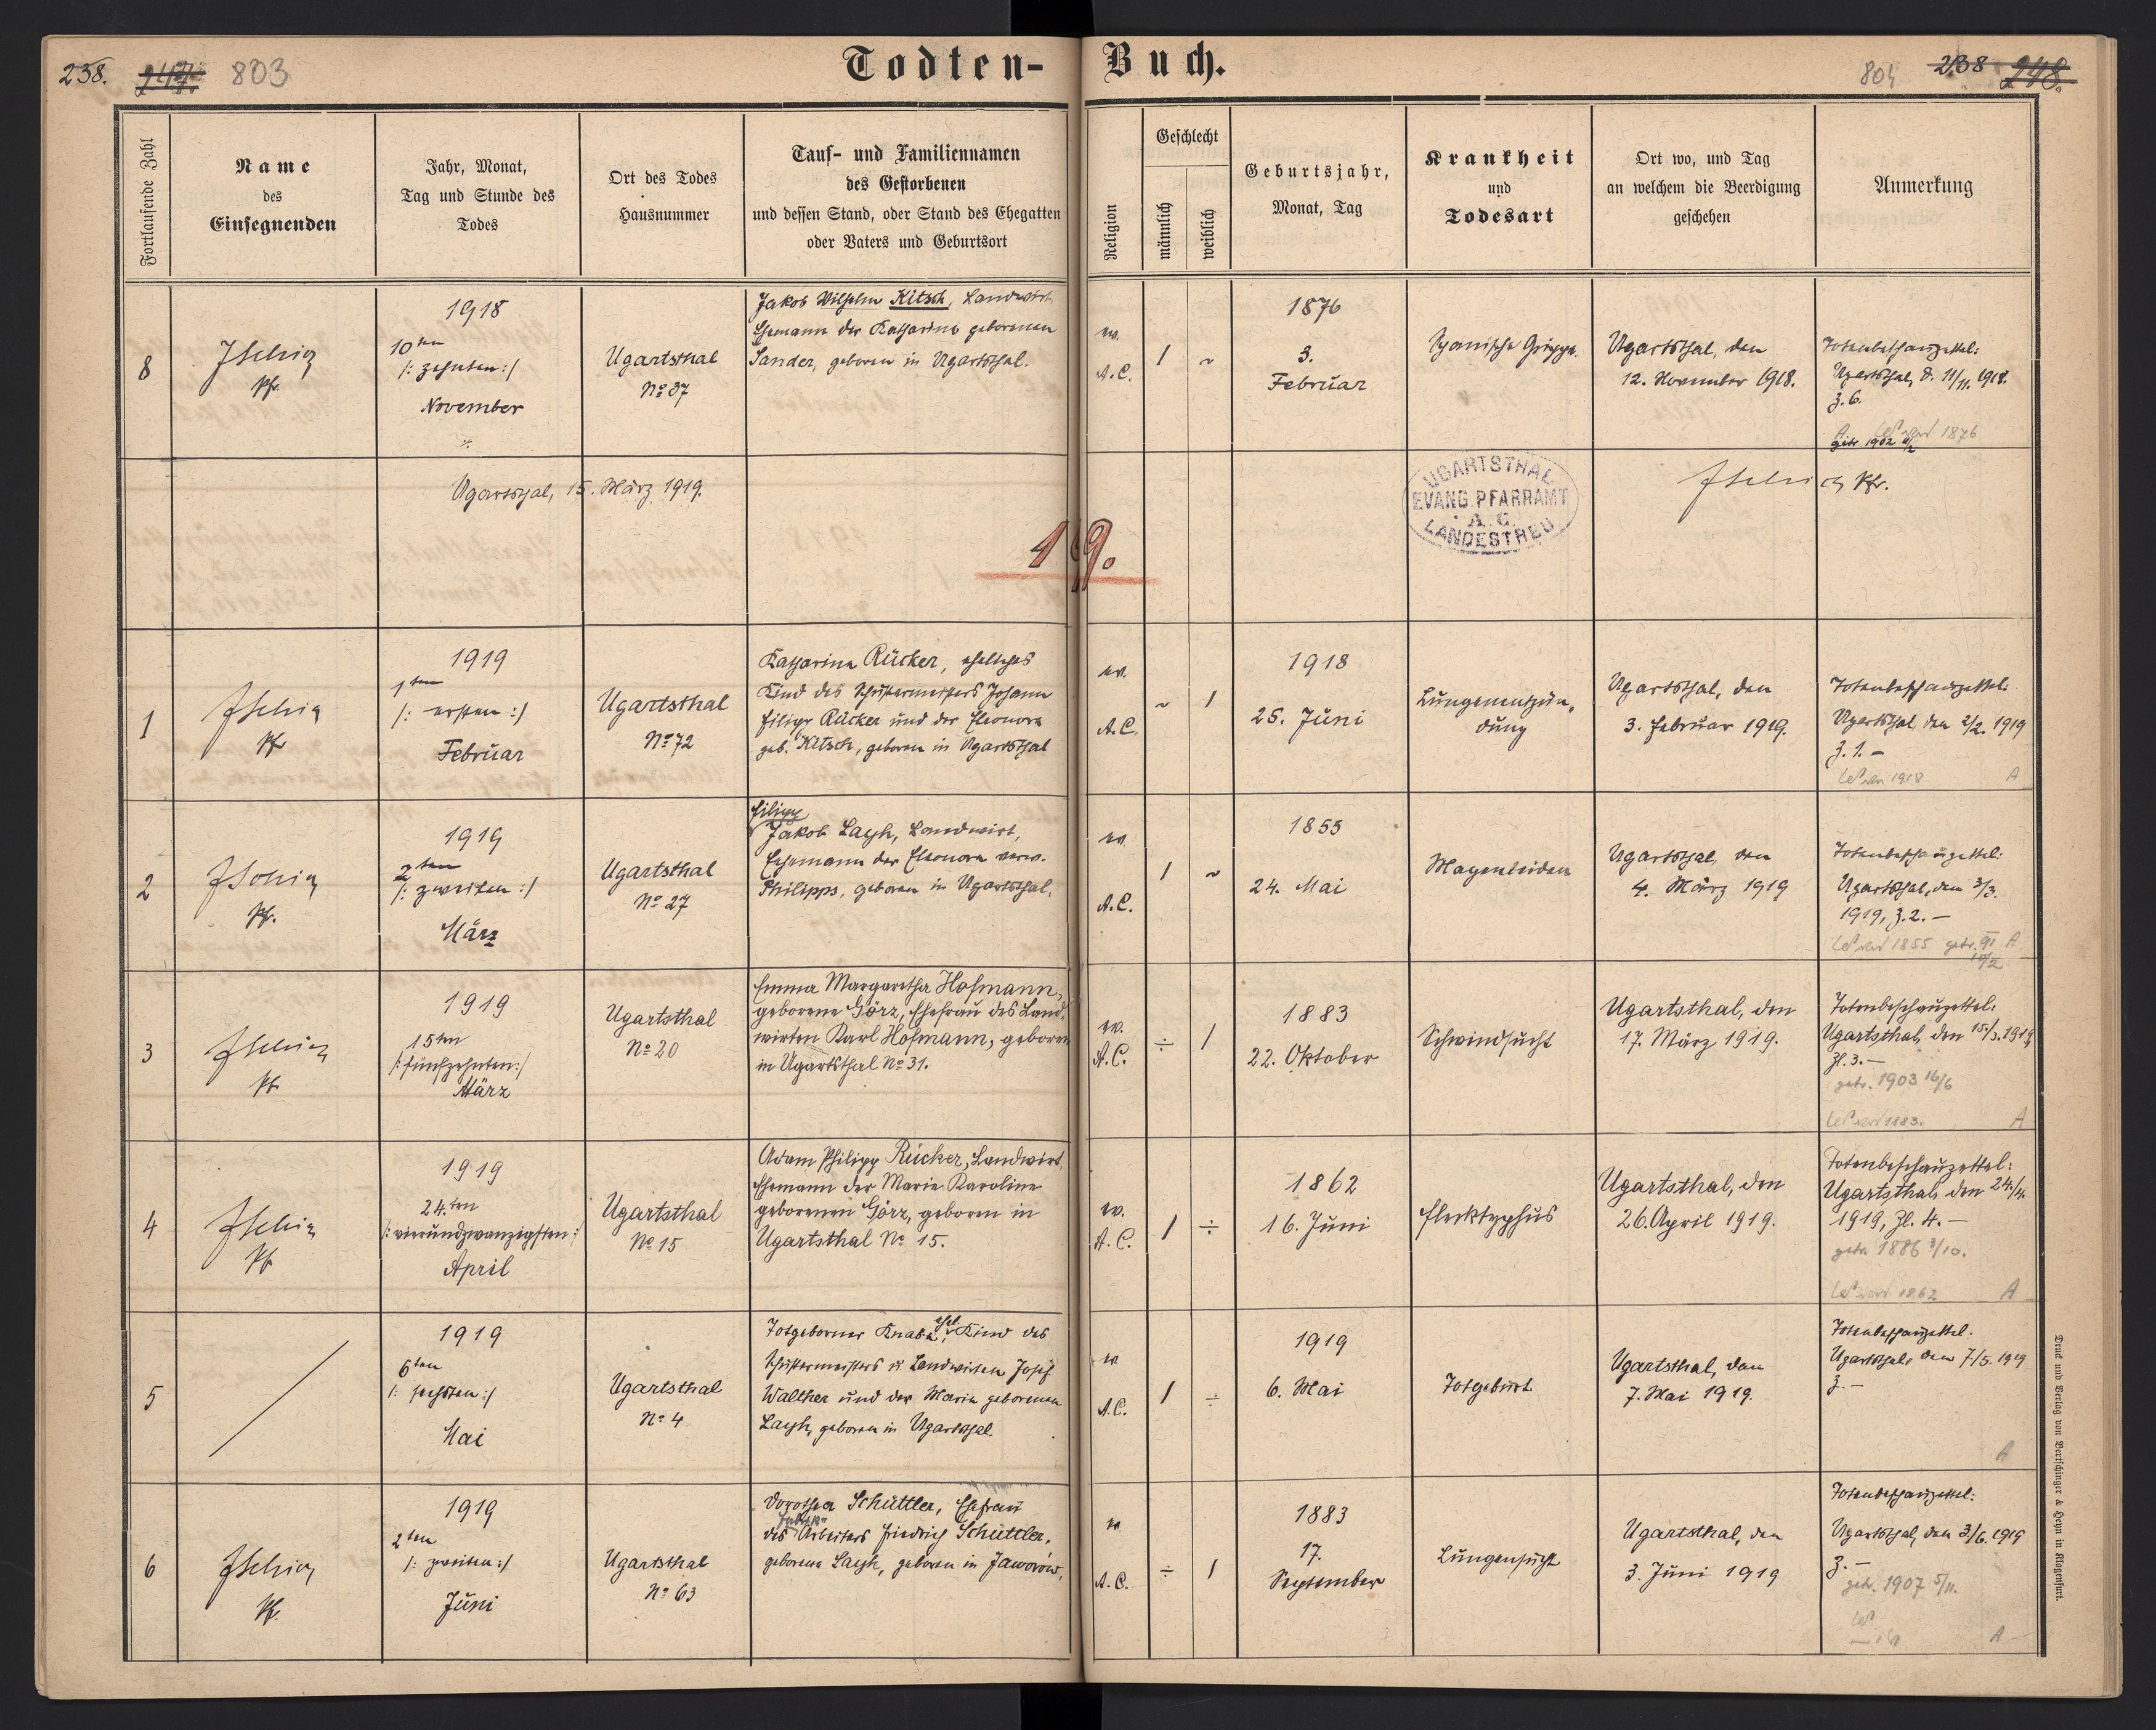 238. 247. 803
Todten-Buch.
804 238 248.
Fortlaufende Zahl
Name
des
Einsegnenden
Jahr, Monat,
Tag und Stunde des
Todes
Ort des Todes
Hausnummer
Tauf- und Familiennamen
des Gestorbenen
und dessen Stand, oder Stand des Ehegatten
oder Vaters und Geburtsort
Religion
Geschlecht
männlich
weiblich
Geburtsjahr,
Monat, Tag
Krankheit
und
Todesart
Ort wo, und Tag
an welchem die Beerdigung
geschehen
Anmerkung
8
Pfr.
1918
10ten
/: zehnten :/
November
Ugartsthal
No 37
Jakob Wilhelm Kitsch, Landwirt
Ehemann der Katharina geborenen
Sander, geboren in Ugartsthal.
ev.
A.C.
1
~
1876
3.
Februar
Spanische Grippe.
Ugartsthal, den
12. November 1918.
Totenbeschauzettel:
Ugartsthal, d. 11/11. 1918.
Z. 6.
1876
1902
Ugartsthal, 15. März 1919.
UGARTSTHAL
EVANG. PFARRAMT
A. C.
LANDESTREU
Pfr.
1919.
1
Pfr
1919
1ten
/: ersten :/
Februar
Ugartsthal
No 72
Katharina Rücker, eheliches
Kind des Schustermeisters Johann
Filipp Rücker und der Eleonora
geb. Kitsch, geboren in Ugartsthal
ev.
A.C.
~
1
1918
25. Juni
Lungenentzün,
dung
Ugartsthal, den
3. Februar 1919.
Totenbeschauzettel:
Ugartsthal, den 2/2. 1919
Z. 1. –
1918 A
2
Pfr.
1919
2ten
/: zweiten :/
März
Ugartsthal
No 27
Filipp
Jakob Layh, Landwirt,
Ehemann der Eleonora verw.
Philipps, geboren in Ugartsthal.
ev.
A.C.
1
~
1855
24. Mai
Magenleiden
Ugartsthal, den
4. März 1919
Totenbeschauzettel:
Ugartsthal, den 3/3.
1919, Z. 2. –
1855 getr. 91 A
3
Pfr
1919
15ten
/: fünfzehnten :/
März
Ugartsthal
No 20
Emma Margaretha Hofmann,
geborene Görz, Ehefrau des Land,
wirten Karl Hofmann, geboren
in Ugartsthal No 31.
ev.
A.C.
÷
1
1883
22. Oktober
Schwindsucht
Ugartsthal, den
17. März 1919.
Totenbeschauzettel:
Ugartsthal, den 15/3. 1919
Zl. 3. –
getr. 1903 16/6
1883. A
4
Pfr
1919
24.ten
/: vierundzwanzigsten :/
April
Ugartsthal
No 15
Adam Philipp Rücker, Landwirt,
Ehemann der Marie Karoline
geborenen Görz, geboren in
Ugartsthal No 15.
ev.
A.C.
1
÷
1862
16. Juni
Flecktyphus
Ugartsthal, den
26. April 1919.
Totenbeschauzettel:
Ugartsthal, den 24./4.
1919, Zl. 4. –
getr. 1886 3/10.
1862 A
5
1919
6ten
/: sechsten :/
Mai
Ugartsthal
No 4
Totgeborner Knabe, ehel. Kind des
Schustermeisters u. Landwirten Josef
Walther und der Maria geborenen
Layh, geboren in Ugartsthal.
ev.
A.C.
1
÷
1919
6. Mai
Totgeburt
Ugartsthal, den
7. Mai 1919.
Totenbeschauzettel.
Ugartsthal, den 7/5. 1919
Z. –
A
6
Pfr.
1919
2ten
/: zweiten :/
Juni
Ugartsthal
No 63
Dorothea Schüttler, Ehefrau
des Arbeiters Friedrich Schüttler,
geborene Layh, geboren in Jaworow,
ev.
A.C.
÷
1
1883
17.
September
Lungensucht
Ugartsthal, den
3. Juni 1919
Totenbeschauzettel:
Ugartsthal, den 3/6. 1919
Z. –
getr. 1907 5/11.
A
Druck und Verlag von Bertschinger & Heyn in Klagenfurt.